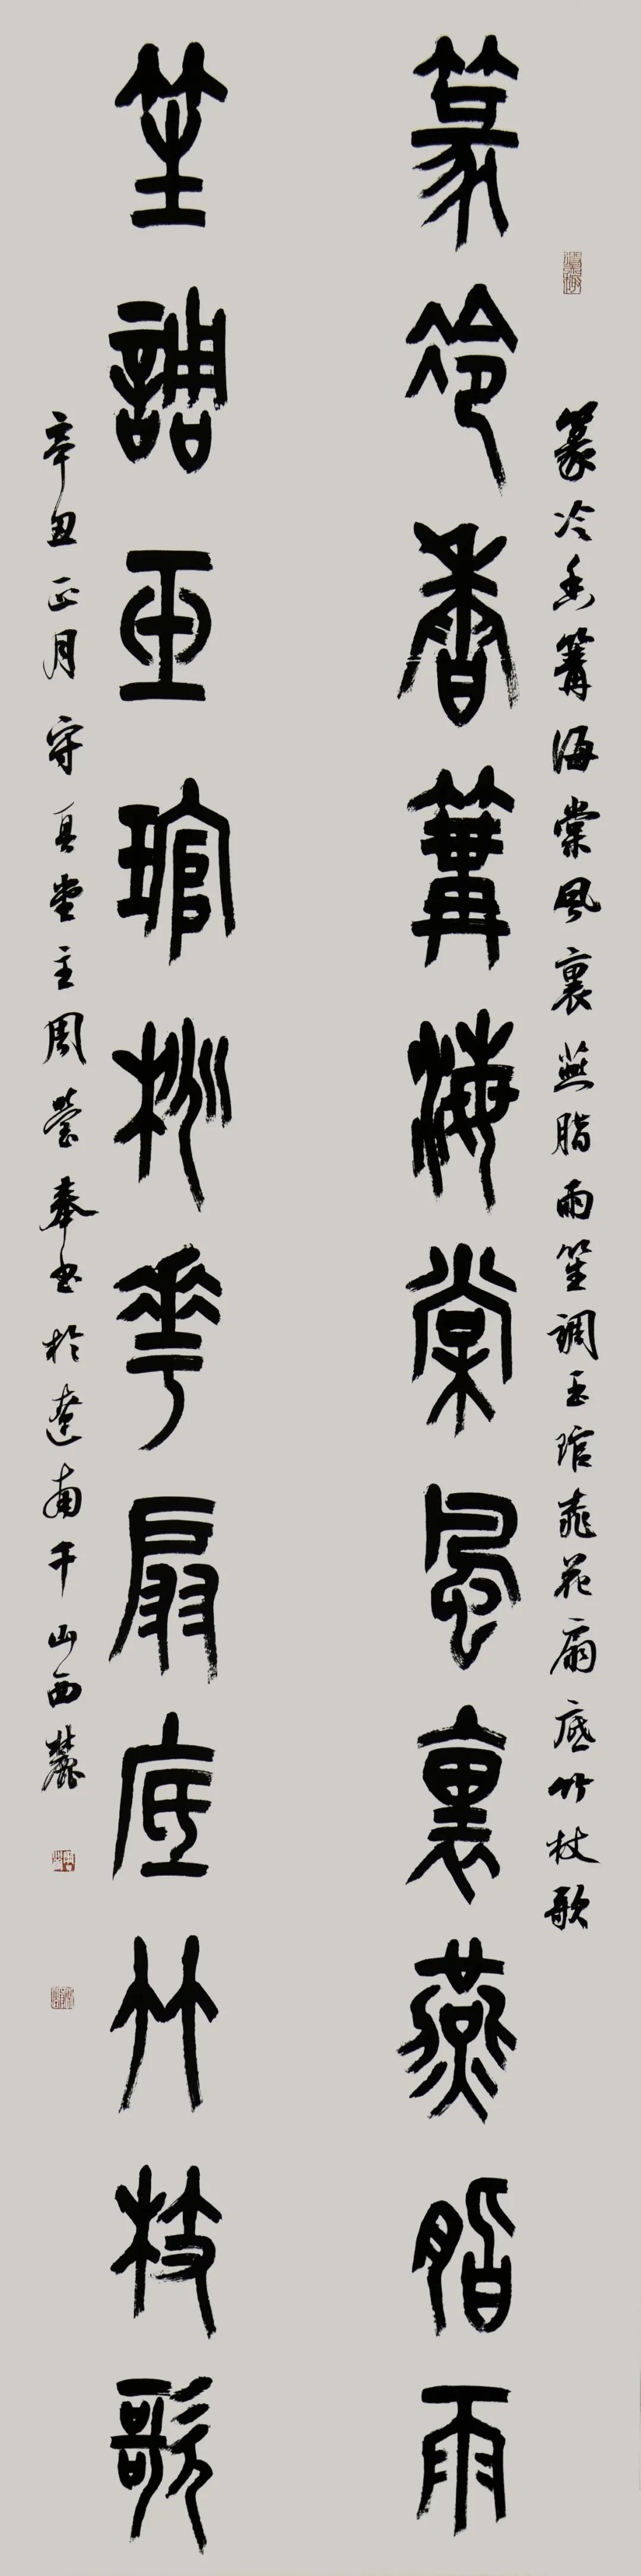 篆冷香篝海棠風裏燕脂雨笙調玉琯桃花扇底竹枝歌
篆冷香篝海棠風裏燕脂雨
笙調玉琯桃花扇底竹枝歌
辛丑正月守真堂主周營奉书於遼南千山西麓